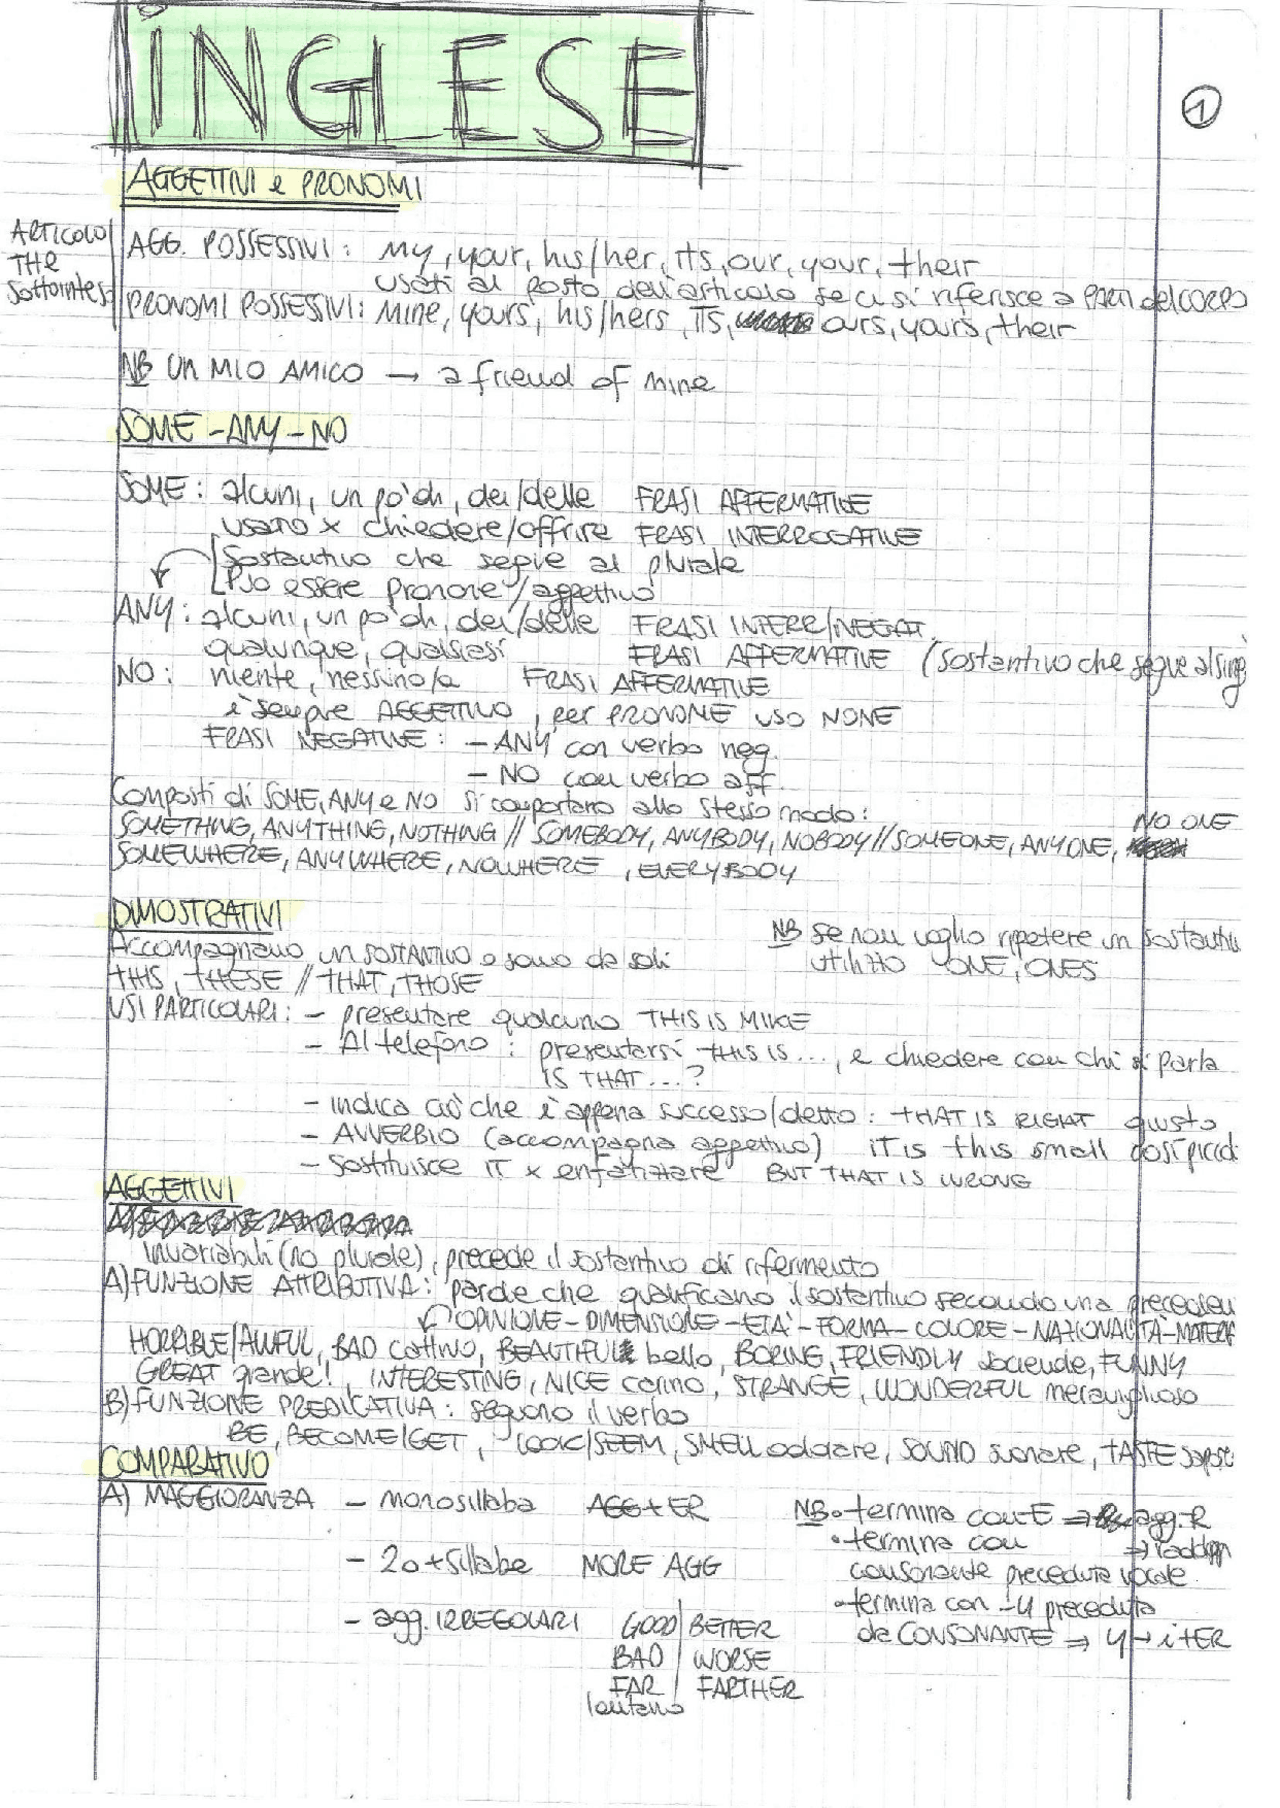 INGLESE
1
AGGETTIVI e PRONOMI
ARTICOLO
THE
sottointeso
AGG. POSSESSIVI: my, your, his/her, its, our, your, their
usati al posto dell'articolo se ci si riferisce a PARTI del CORPO
PRONOMI POSSESSIVI: mine, yours, his/hers, ITS, ours, yours, their
NB UN MIO AMICO → a friend of mine
SOME - ANY - NO
SOME: alcuni, un po' di, dei/delle FRASI AFFERMATIVE
usano x chiedere/offrire FRASI INTERROGATIVE
Sostantivo che segue al plurale
Può essere pronome/aggettivo
ANY: alcuni, un po' di, dei/delle FRASI INTERR/NEGAT.
qualunque, qualsiasi FRASI AFFERMATIVE (sostantivo che segue al sing
NO: niente, nessino/a FRASI AFFERMATIVE
è sempre AGGETTIVO, per PRONOME USO NONE
FRASI NEGATIVE: - ANY con verbo neg.
- NO con verbo aff.
Composti di SOME, ANY e NO si comportano allo stesso modo:
SOMETHING, ANYTHING, NOTHING // SOMEBODY, ANYBODY, NOBODY // SOMEONE, ANYONE, NO ONE
SOMEWHERE, ANYWHERE, NOWHERE, EVERYBODY
DIMOSTRATIVI
Accompagnano un SOSTANTIVO o sono da soli
THIS, THESE // THAT, THOSE
NB se non voglio ripetere un sostantivo
utilizzo ONE, ONES
USI PARTICOLARI: - presentare qualcuno THIS IS MIKE
- Al telefono: presentarsi THIS IS ..., e chiedere con chi si parla
IS THAT...?
- indica ciò che è appena successo/detto: THAT IS RIGHT giusto
- AVVERBIO (accompagna aggettivo) it is this small così picco
- Sostituisce IT x enfatizzare BUT THAT IS WRONG
AGGETTIVI
invariabili (no plurale), precede il sostantivo di riferimento
A) FUNZIONE ATTRIBUTIVA: parole che qualificano il sostantivo secondo una preceden
OPINIONE - DIMENSIONE - ETÀ - FORMA - COLORE - NAZIONALITÀ - MATER
HORRIBLE/AWFUL, BAD cattivo, BEAUTIFUL bello, BORING, FRIENDLY socievole, FUNNY
GREAT grande!, INTERESTING, NICE carino, STRANGE, WONDERFUL meraviglioso
B) FUNZIONE PREDICATIVA: seguono il verbo
BE, BECOME/GET, LOOK/SEEM, SMELL odorare, SOUND suonare, TASTE
COMPARATIVO
A) MAGGIORANZA - monosillaba AGG+ER
- 2o+sillabe MORE AGG
- agg. IRREGOLARI GOOD | BETTER
BAD | WORSE
FAR | FARTHER
lontano
NB • termina con -E ⇒ agg. R
• termina con → raddopp
consonante preceduta vocale.
• termina con -y preceduta
da CONSONANTE ⇒ y → i+ER